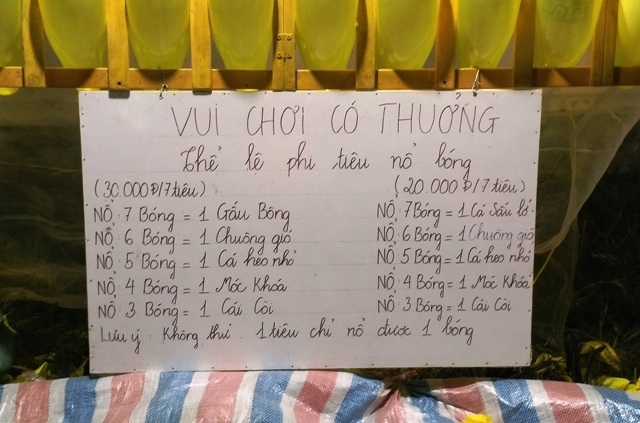 VUI CHƠI CÓ THƯỞNG
Thể lệ phi tiêu nổ bóng
(30.000Đ/7 tiêu)
NỔ: 7 Bóng = 1 Gấu Bông
NỔ: 6 Bóng = 1 Chuông gió
NỔ: 5 Bóng = 1 Cá heo nhỏ
NỔ: 4 Bóng = 1 Móc Khóa
NỔ: 3 Bóng = 1 Cái Còi
(20.000Đ/7 tiêu)
NỔ: 7 Bóng = 1 Cá Sấu
NỔ: 6 Bóng = 1 Chuông gió
NỔ: 5 Bóng = 1 Cá heo nhỏ
NỔ: 4 Bóng = 1 Móc Khóa
NỔ: 3 Bóng = 1 Cái Còi
Lưu ý: Không thử. 1 tiêu chỉ nổ được 1 bóng